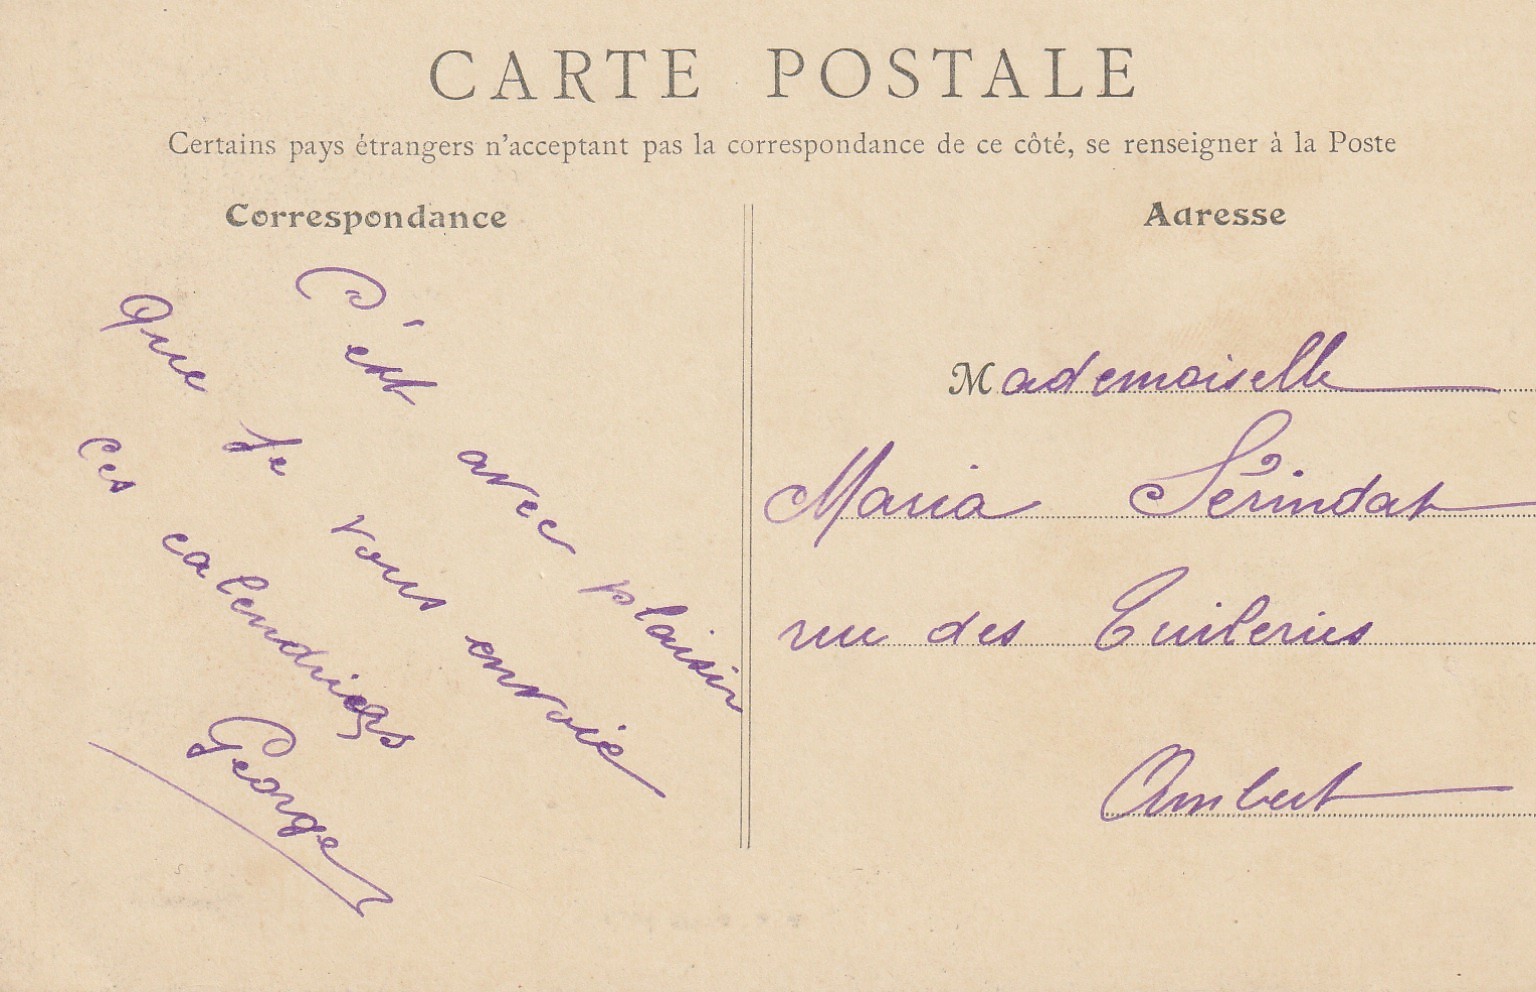 CARTE POSTALE
Certains pays étrangers n'acceptant pas la correspondance de ce côté, se renseigner à la Poste
Correspondance
C'est avec plaisir
que je vous envoie
ces calendriers
George
Adresse
Mademoiselle
Maria Sérindat
rue des Tuileries
Ambert